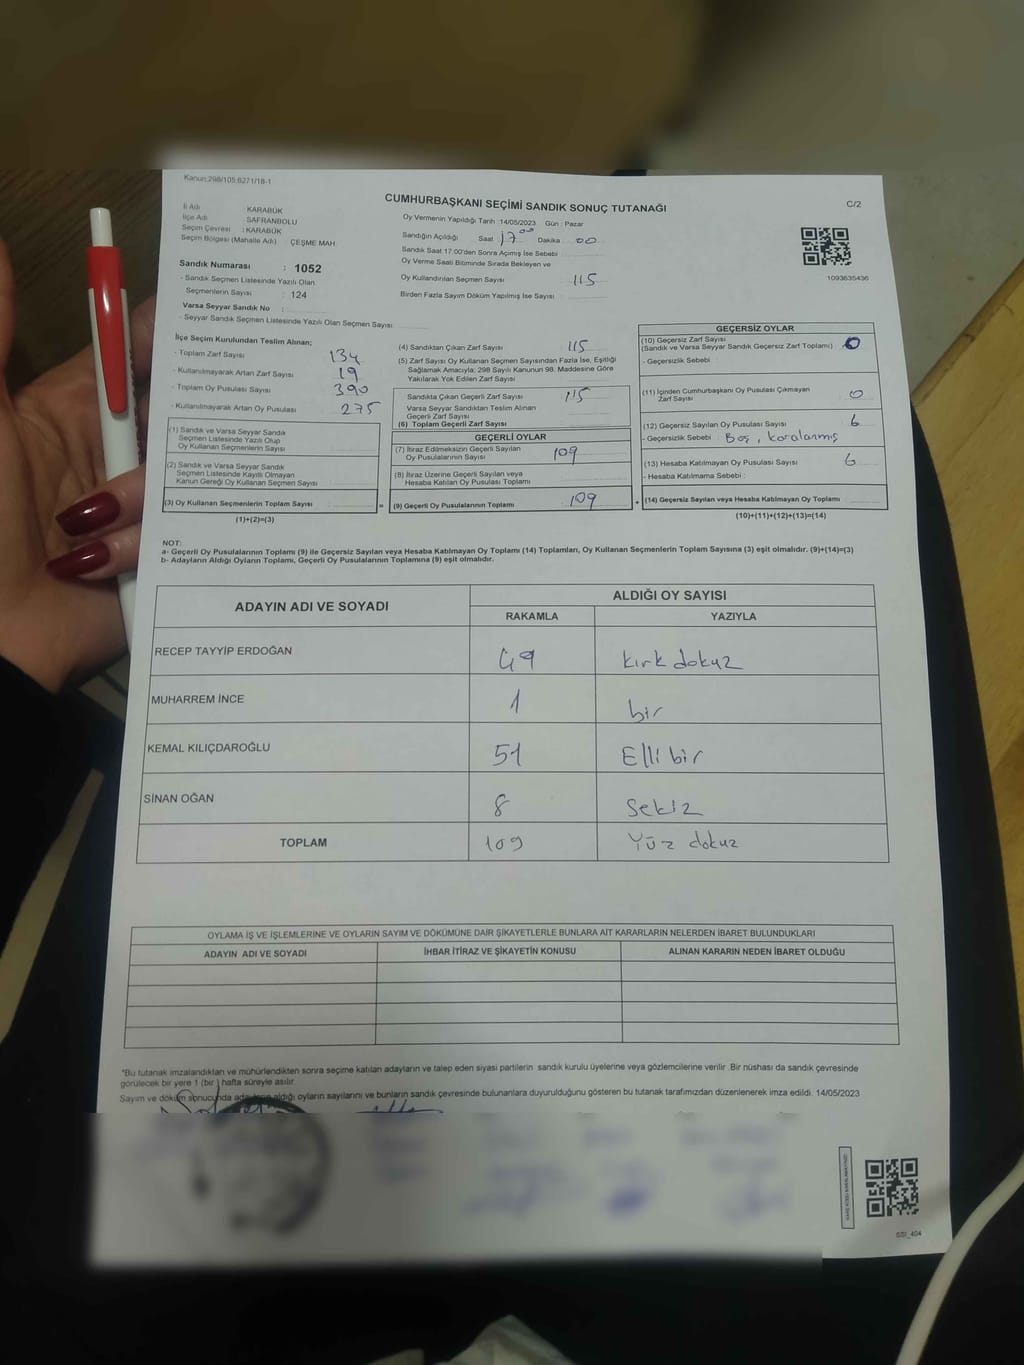 Kanun:298/105,6271/18-1
CUMHURBAŞKANI SEÇİMİ SANDIK SONUÇ TUTANAĞI
C/2
İl Adı : KARABÜK
İlçe Adı : SAFRANBOLU
Seçim Çevresi : KARABÜK
Seçim Bölgesi (Mahalle Adı) : ÇEŞME MAH.
Sandık Numarası : 1052
- Sandık Seçmen Listesinde Yazılı Olan
Seçmenlerin Sayısı : 124
Varsa Seyyar Sandık No :
- Seyyar Sandık Seçmen Listesinde Yazılı Olan Seçmen Sayısı
Oy Vermenin Yapıldığı Tarih :14/05/2023 Gün : Pazar
Sandığın Açıldığı Saat 17⁰⁰ Dakika 00
Sandık Saat 17.00'den Sonra Açımış İse Sebebi
Oy Verme Saati Bitiminde Sırada Bekleyen ve
Oy Kullandırılan Seçmen Sayısı 115
Birden Fazla Sayım Döküm Yapılmış İse Sayısı
1093635436
İlçe Seçim Kurulundan Teslim Alınan;
- Toplam Zarf Sayısı 134
- Kullanılmayarak Artan Zarf Sayısı 19
- Toplam Oy Pusulası Sayısı 390
- Kullanılmayarak Artan Oy Pusulası 275
(1) Sandık ve Varsa Seyyar Sandık
Seçmen Listesinde Yazılı Olup
Oy Kullanan Seçmenlerin Sayısı
(2) Sandık ve Varsa Seyyar Sandık
Seçmen Listesinde Kayıtlı Olmayan
Kanun Gereği Oy Kullanan Seçmen Sayısı
(3) Oy Kullanan Seçmenlerin Toplam Sayısı
(1)+(2)=(3)
=
(4) Sandıktan Çıkan Zarf Sayısı 115
(5) Zarf Sayısı Oy Kullanan Seçmen Sayısından Fazla İse, Eşitliği
Sağlamak Amacıyla; 298 Sayılı Kanunun 98. Maddesine Göre
Yakılarak Yok Edilen Zarf Sayısı
Sandıkta Çıkan Geçerli Zarf Sayısı 115
Varsa Seyyar Sandıktan Teslim Alınan
Geçerli Zarf Sayısı
(6) Toplam Geçerli Zarf Sayısı
GEÇERLİ OYLAR
(7) İtiraz Edilmeksizin Geçerli Sayılan
Oy Pusulalarının Sayısı 109
(8) İtiraz Üzerine Geçerli Sayılan veya
Hesaba Katılan Oy Pusulası Toplamı
(9) Geçerli Oy Pusulalarının Toplamı 109
+
GEÇERSİZ OYLAR
(10) Geçersiz Zarf Sayısı
(Sandık ve Varsa Seyyar Sandık Geçersiz Zarf Toplamı) : 0
- Geçersizlik Sebebi
(11) İçinden Cumhurbaşkanı Oy Pusulası Çıkmayan
Zarf Sayısı 0
(12) Geçersiz Sayılan Oy Pusulası Sayısı 6
- Geçersizlik Sebebi : Boş, karalanmış
(13) Hesaba Katılmayan Oy Pusulası Sayısı 6
- Hesaba Katılmama Sebebi :
(14) Geçersiz Sayılan veya Hesaba Katılmayan Oy Toplamı
(10)+(11)+(12)+(13)=(14)
NOT:
a- Geçerli Oy Pusulalarının Toplamı (9) ile Geçersiz Sayılan veya Hesaba Katılmayan Oy Toplamı (14) Toplamları, Oy Kullanan Seçmenlerin Toplam Sayısına (3) eşit olmalıdır. (9)+(14)=(3)
b- Adayların Aldığı Oyların Toplamı, Geçerli Oy Pusulalarının Toplamına (9) eşit olmalıdır.
ADAYIN ADI VE SOYADI
ALDIĞI OY SAYISI
RAKAMLA YAZIYLA
RECEP TAYYİP ERDOĞAN 49 kırk dokuz
MUHARREM İNCE 1 bir
KEMAL KILIÇDAROĞLU 51 Elli bir
SİNAN OĞAN 8 Sekiz
TOPLAM 109 Yüz dokuz
OYLAMA İŞ VE İŞLEMLERİNE VE OYLARIN SAYIM VE DÖKÜMÜNE DAİR ŞİKAYETLERLE BUNLARA AİT KARARLARIN NELERDEN İBARET BULUNDUKLARI
ADAYIN ADI VE SOYADI İHBAR İTİRAZ VE ŞİKAYETİN KONUSU ALINAN KARARIN NEDEN İBARET OLDUĞU
*Bu tutanak imzalandıktan ve mühürlendikten sonra seçime katılan adayların ve talep eden siyasi partilerin sandık kurulu üyelerine veya gözlemcilerine verilir .Bir nüshası da sandık çevresinde
görülecek bir yere 1 (bir ) hafta süreyle asılır.
Sayım ve döküm sonucunda adayların aldığı oyların sayılarını ve bunların sandık çevresinde bulunanlara duyurulduğunu gösteren bu tutanak tarafımızdan düzenlenerek imza edildi. 14/05/2023
SSI_404